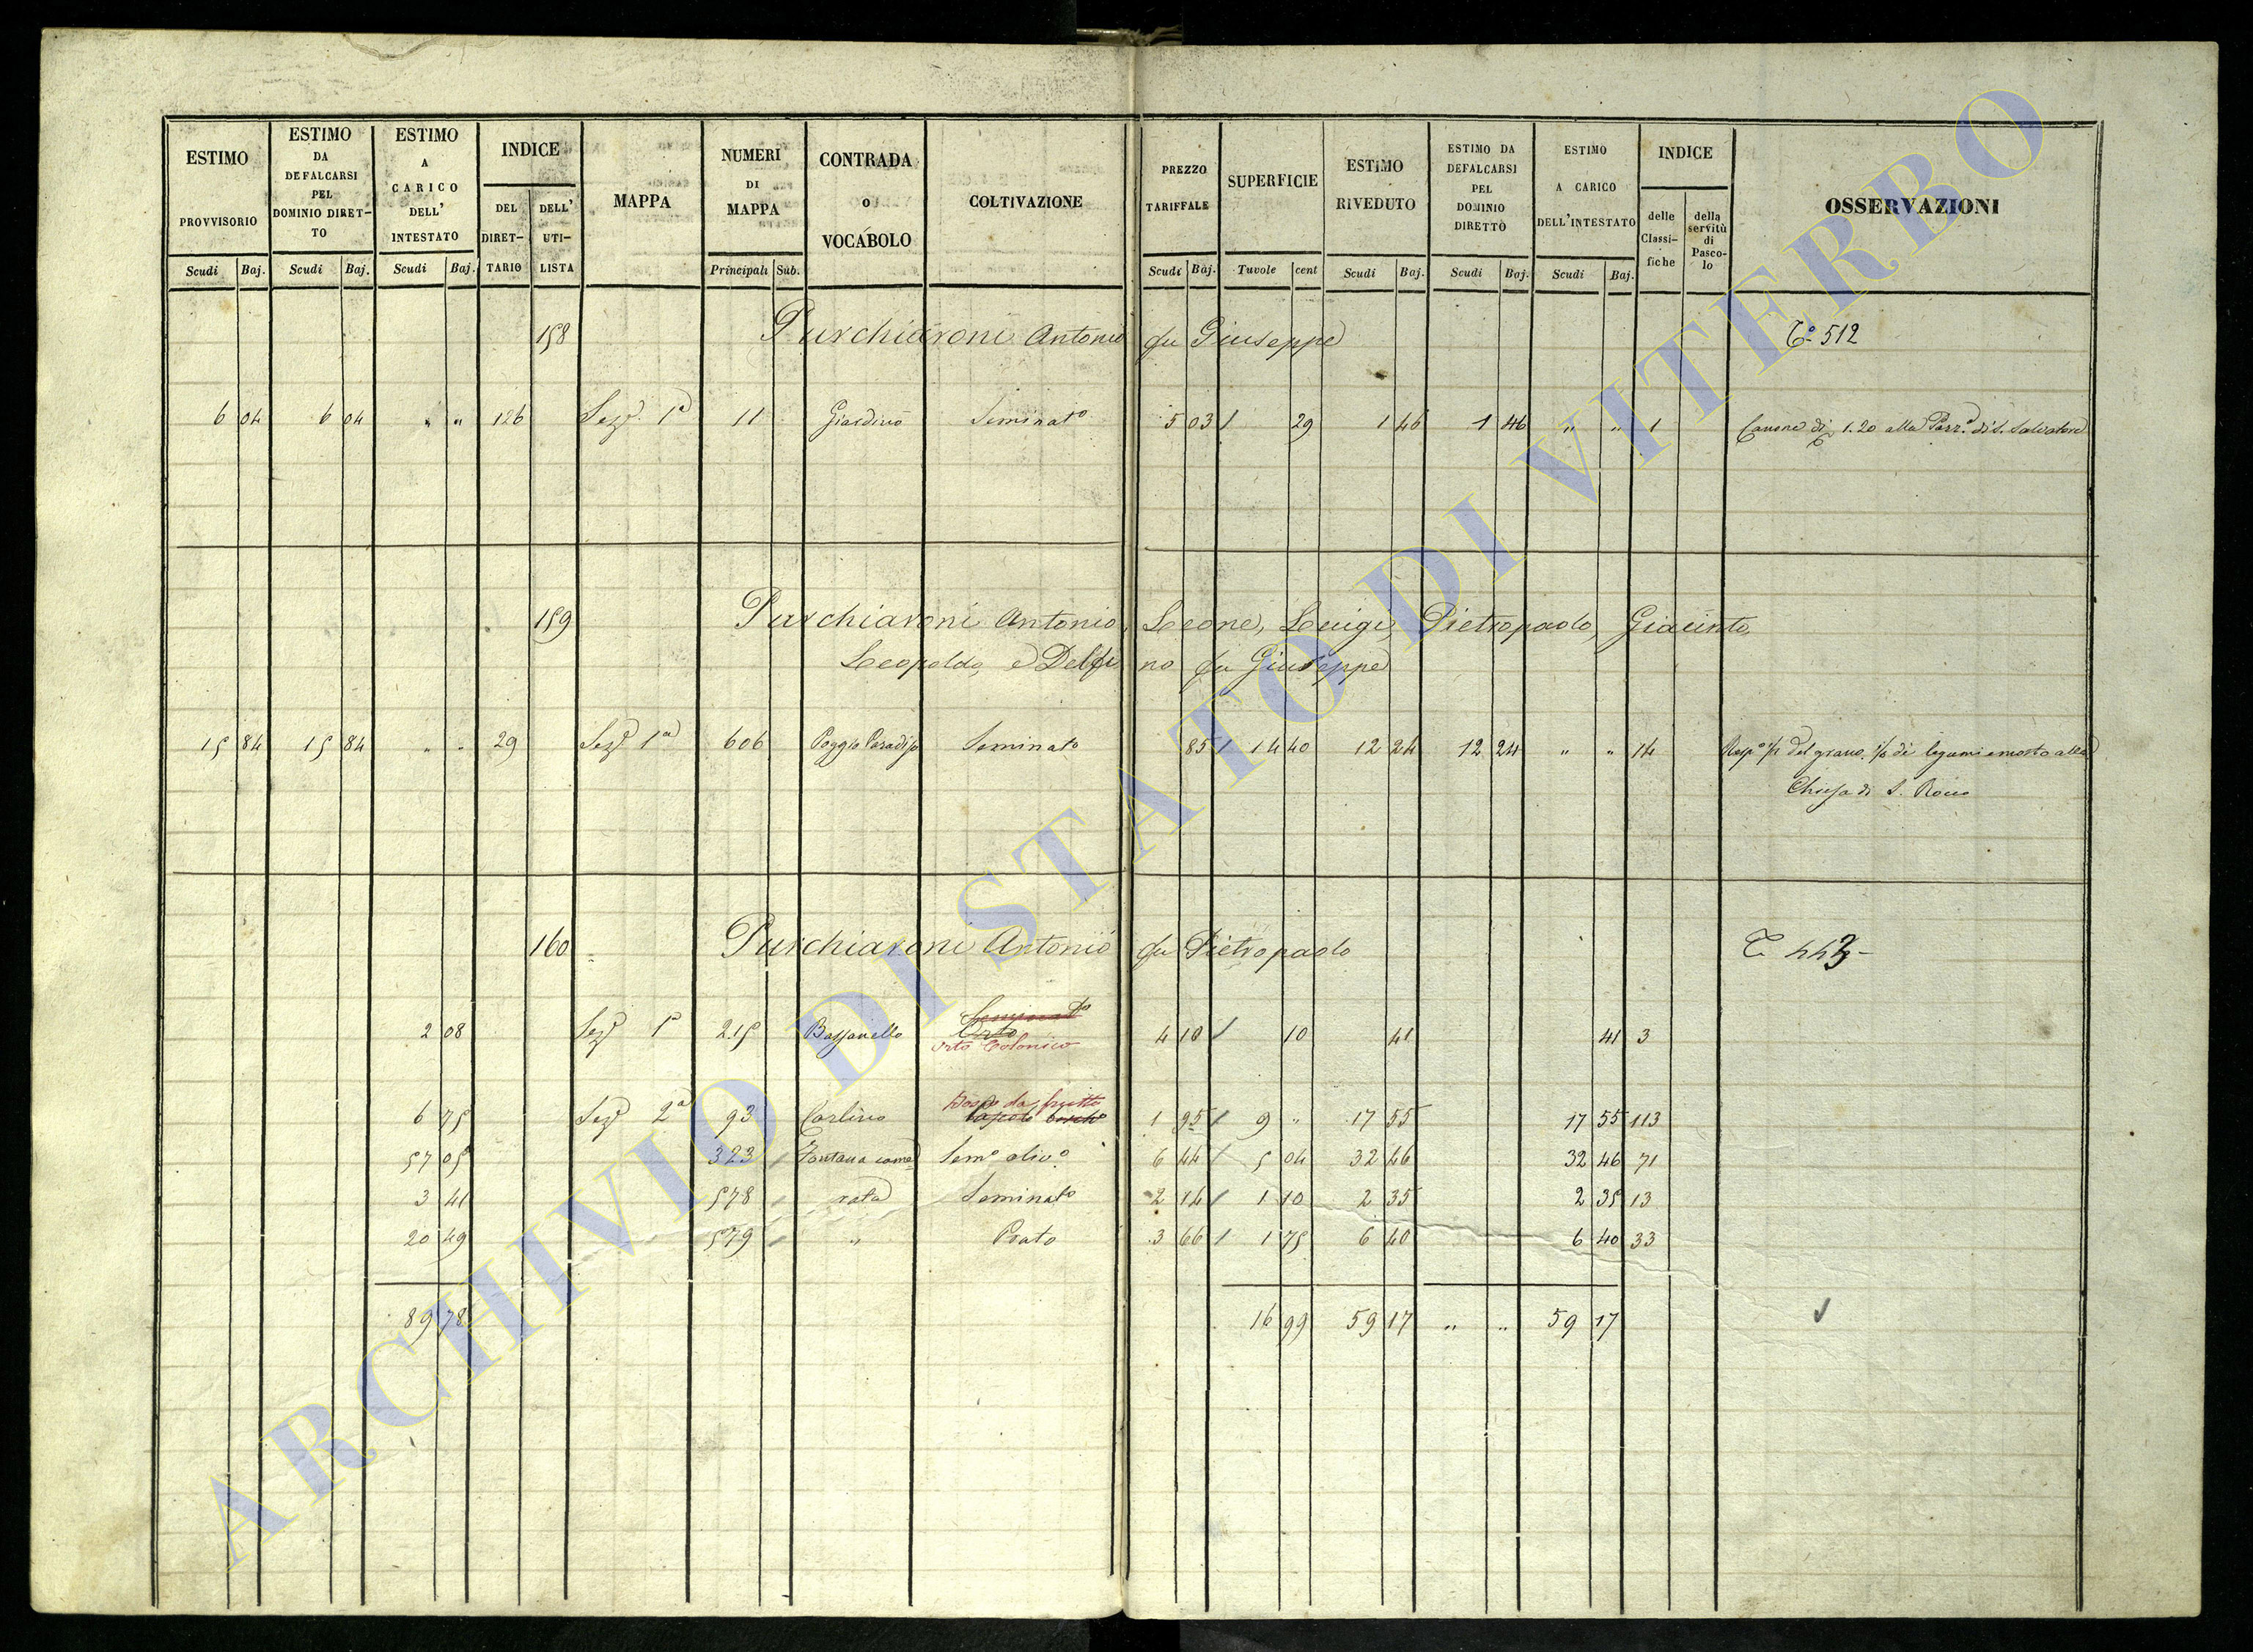 ESTIMO PROVVISORIO Scudi Baj.
ESTIMO DA DEFALCARSI PEL DOMINIO DIRET-TO Scudi Baj.
ESTIMO A CARICO DELL' INTESTATO Scudi Baj.
INDICE DEL DIRET-TARIO DELL' UTI-LISTA
MAPPA
NUMERI DI MAPPA Principali Sub.
CONTRADA o VOCABOLO
COLTIVAZIONE
PREZZO TARIFFALE Scudi Baj.
SUPERFICIE Tavole cent
ESTIMO RIVEDUTO Scudi Baj.
ESTIMO DA DEFALCARSI PEL DOMINIO DIRETTO Scudi Baj.
ESTIMO A CARICO DELL'INTESTATO Scudi Baj.
INDICE delle Classi-fiche della servitù di Pasco-lo
OSSERVAZIONI
158 Purchiaroni Antonio fu Giuseppe 512
6 04 6 04 " " 126 Sezᵉ 1ª 11 Giardino Seminatº 5 03 / 29 1 46 1 46 " " 1 Canone di 1.20 alla Parr.ª di S. Salvatore
159 Purchiaroni Antonio, Leone, Luigi, Pietropaolo, Giacinto,
Leopoldo, e Delfino fu Giuseppe
15 84 15 84 " " 29 Sezᵉ 1ª 606 Poggio Paradiso Seminatº 85 / 14 40 12 24 12 24 " " 14 Rispª del grano, di legumi e mosto alla
Chiesa di S. Rocco
160 Purchiaroni Antonio fu Pietropaolo 443
Seminatº
Orto
2 08 Sezᵉ 1ª 215 Bassanello Orto Colonico 4 10 / 10 41 41 3
Bosco da frutto
6 75 Sezᵉ 2ª 93 Carlino 1 95 / 9 " 17 55 17 55 113
57 05 323 Fontana came Semº olivº 6 44 / 5 04 32 46 32 46 71
3 41 578 rata Seminatº 2 14 / 1 10 2 35 2 35 13
20 49 579 " Prato 3 66 / 1 75 6 40 6 40 33
89 78 16 99 59 17 " " 59 17
ARCHIVIO DI STATO DI VITERBO